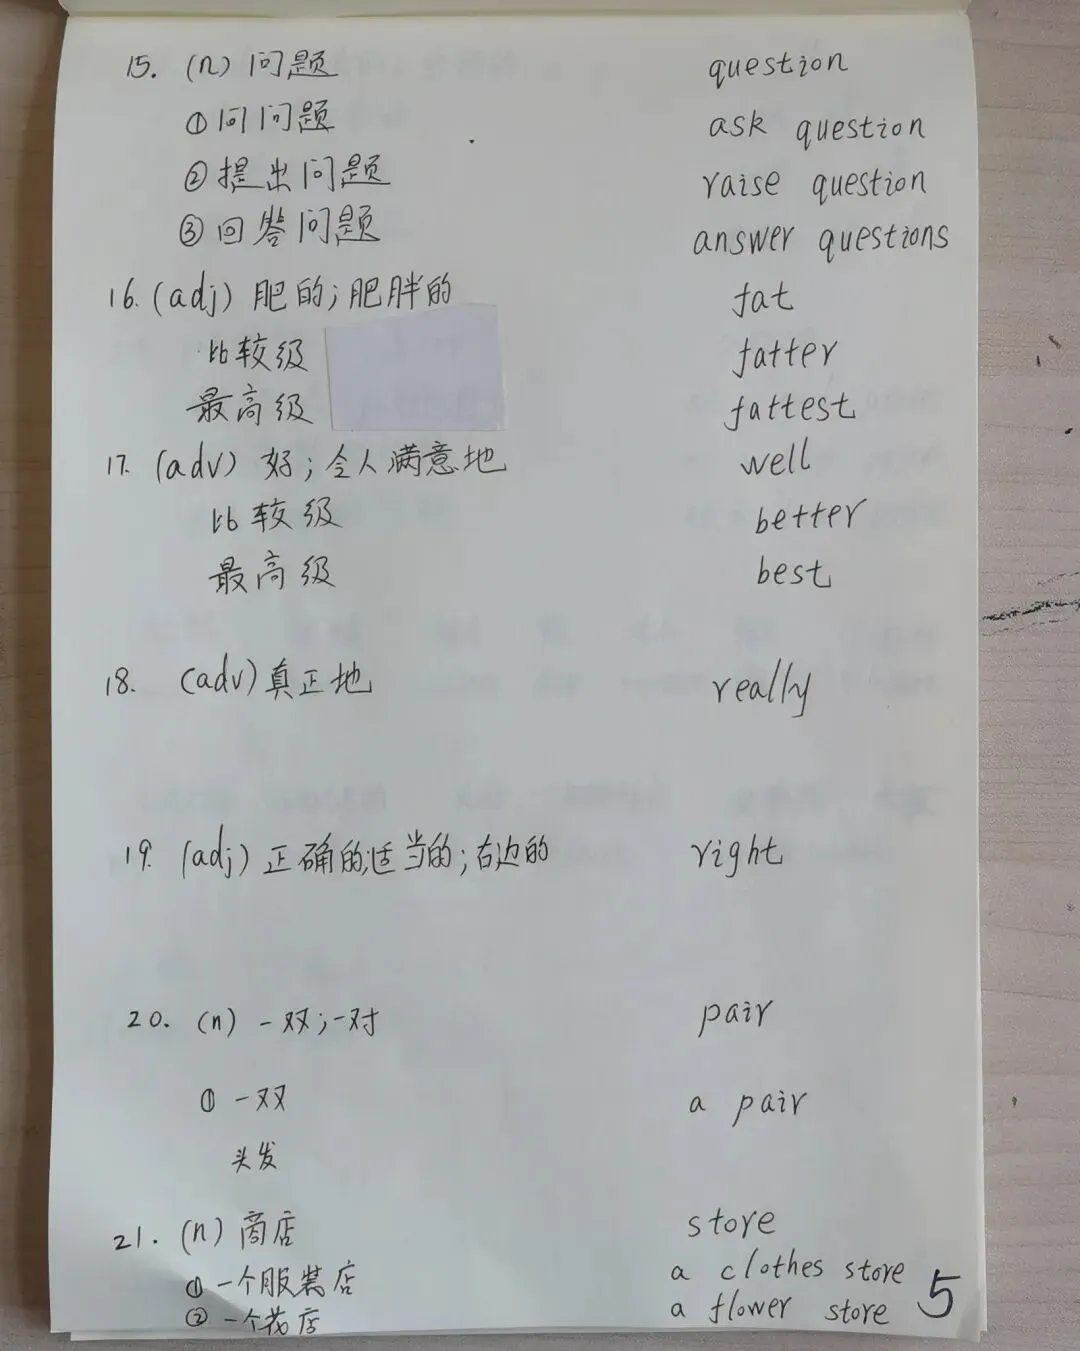 15. (n) 问题 question
①问问题 ask question
②提出问题 raise question
③回答问题 answer questions
16. (adj) 肥的;肥胖的 fat
比较级 fatter
最高级 fattest
17. (adv) 好;令人满意地 well
比较级 better
最高级 best
18. (adv) 真正地 really
19. (adj) 正确的;适当的;右边的 right
20. (n) 一双;一对 pair
① 一双 a pair
头发
21. (n) 商店 store
① 一个服装店 a clothes store
② 一个花店 a flower store
5